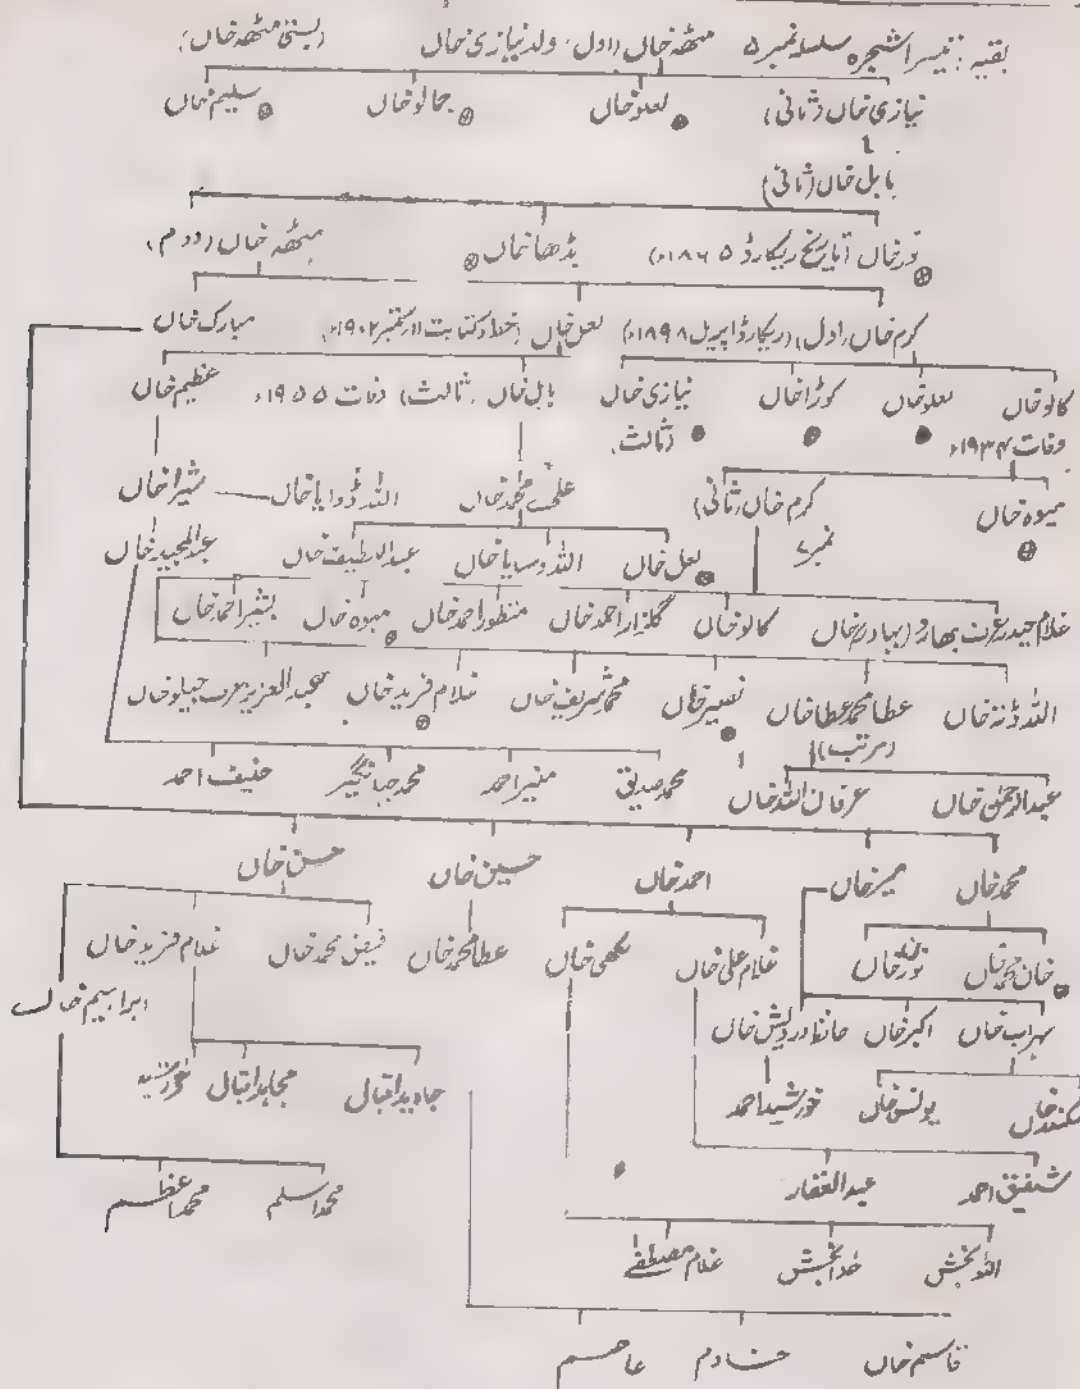 بقیہ: تیسرا شجرہ سلسلہ نمبر ۵ مٹھہ خاں (اول) ولد نیازی خاں (بستی مٹھہ خاں)
نیازی خاں (ثانی) لعلو خاں جمالو خاں سلیم خاں
بابل خاں (ثانی)
نور خاں (تاریخ ریکارڈ ۱۸۶۵ء) بڈھا خاں مٹھہ خاں (دوم)
کرم خاں (اول) (ریکارڈ اپریل ۱۸۹۸ء) لعل خاں (خط و کتابت ۱۱ ستمبر ۱۹۰۲ء) مبارک خاں
کالو خاں لعلو خاں کوڑا خاں نیازی خاں بابل خاں (ثالث) وفات ۱۹۵۵ء عظیم خاں
وفات ۱۹۳۴ء (ثالث)
میوہ خاں کرم خاں (ثانی) علی محمد خاں اللہ ڈوایا خاں شیرا خاں
نمبر ۷ لعل خاں اللہ وسایا خاں عبداللطیف خاں عبدالمجید خاں
غلام حیدر عرف بھارو (بہادر) خاں کالو خاں گلزار احمد خاں منظور احمد خاں میوہ خاں بشیر احمد خاں
اللہ ڈتہ خاں عطا محمد عطا خاں نصیر خاں محمد شریف خاں غلام فرید خاں عبدالعزیز عرف جیلو خاں
(مرتب)
عبدالرحمٰن خاں عرفان اللہ خاں محمد صدیق منیر احمد محمد جہانگیر حنیف احمد
محمد خاں میر خاں احمد خاں حسین خاں حسن خاں
خان محمد خاں نور خاں غلام علی خاں مکھی خاں عطا محمد خاں فیض محمد خاں غلام فرید خاں
ابراہیم خاں
سہراب خاں اکبر خاں حافظ درویش خاں
سکندر خاں یونس خاں خورشید احمد جاوید اقبال مجاہد اقبال خورشید
شفیق احمد عبدالغفار محمد اسلم محمد اعظم
اللہ بخش خدا بخش غلام مصطفےٰ
قاسم خاں خادم عاصم